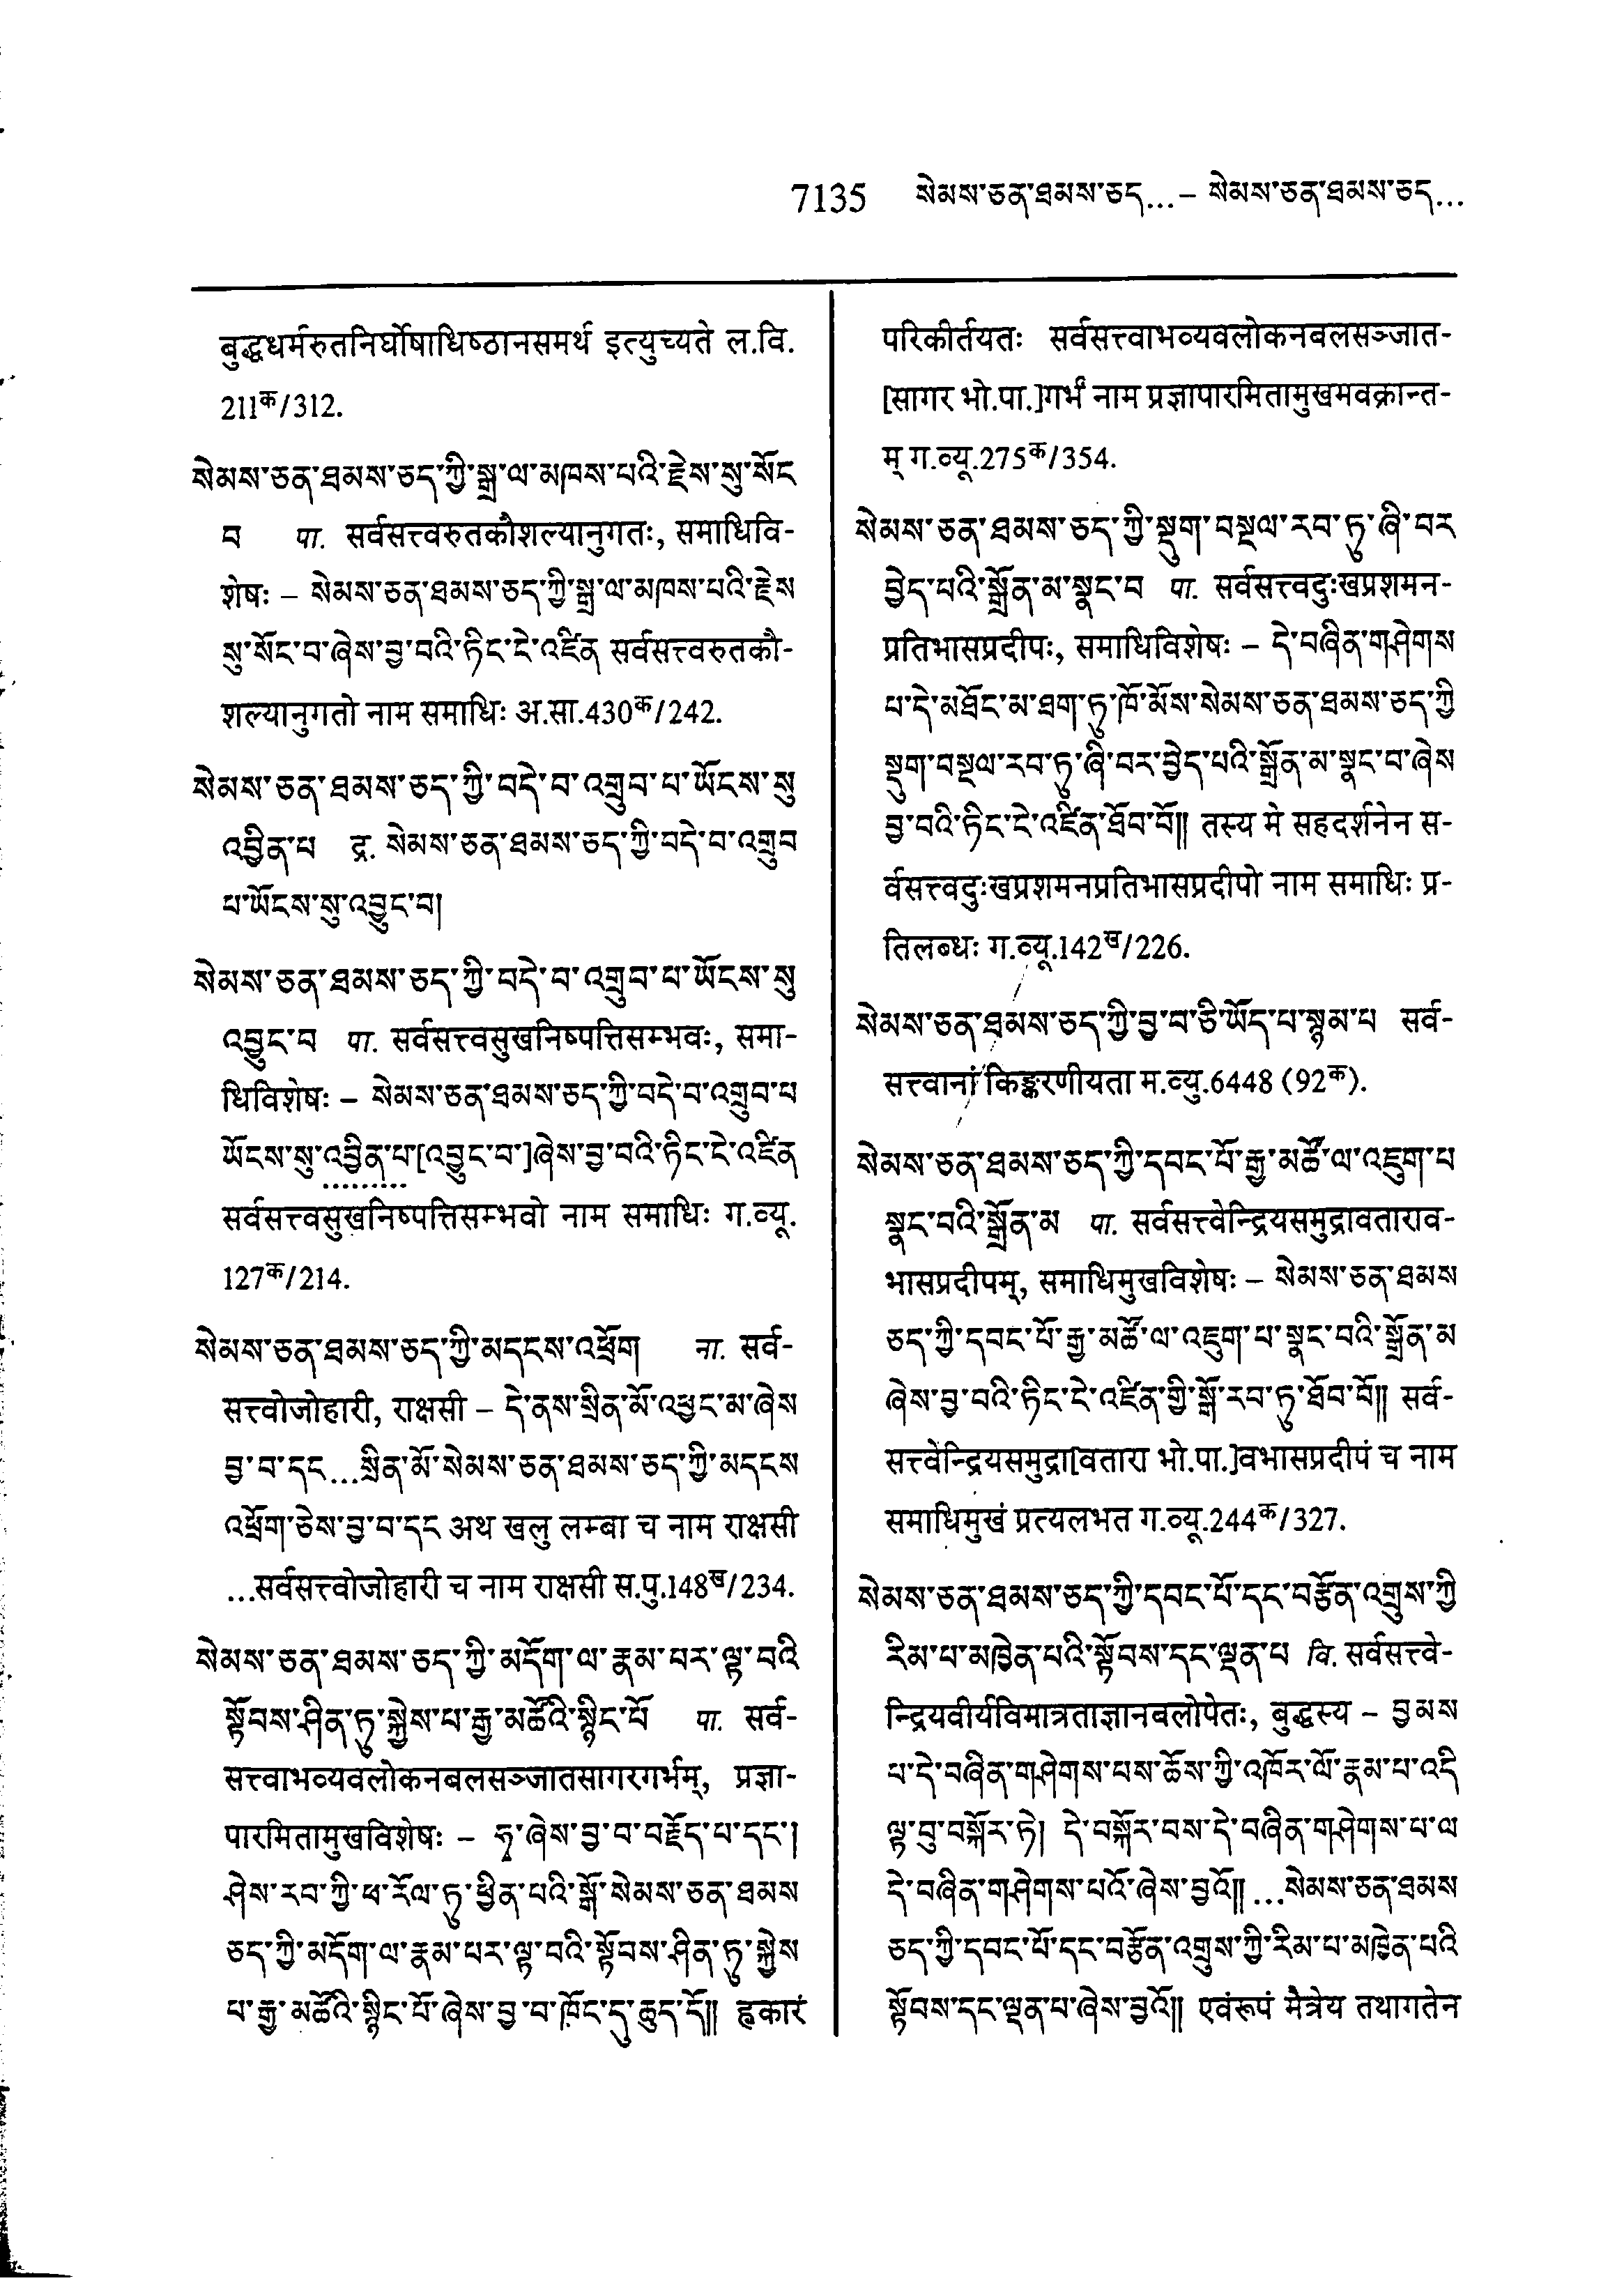 7135 སེམས་ཅན་ཐམས་ཅད...– སེམས་ཅན་ཐམས་ཅད...
बुद्धधर्मरुतनिर्घोषाधिष्ठानसमर्थ इत्युच्यते ल.वि.
211क/312.
སེམས་ཅན་ཐམས་ཅད་ཀྱི་སྒྲ་ལ་མཁས་པའི་རྗེས་སུ་སོང
བ पा. सर्वसत्त्वरुतकौशल्यानुगतः, समाधिवि-
शेषः – སེམས་ཅན་ཐམས་ཅད་ཀྱི་སྒྲ་ལ་མཁས་པའི་རྗེས
སུ་སོང་བ་ཞེས་བྱ་བའི་ཏིང་ངེ་འཛིན सर्वसत्त्वरुतकौ-
शल्यानुगतो नाम समाधिः अ.सा.430क/242.
སེམས་ཅན་ཐམས་ཅད་ཀྱི་བདེ་བ་འགྲུབ་པ་ཡོངས་སུ
འབྱིན་པ द्र. སེམས་ཅན་ཐམས་ཅད་ཀྱི་བདེ་བ་འགྲུབ
པ་ཡོངས་སུ་འབྱུང་བ།
སེམས་ཅན་ཐམས་ཅད་ཀྱི་བདེ་བ་འགྲུབ་པ་ཡོངས་སུ
འབྱུང་བ पा. सर्वसत्त्वसुखनिष्पत्तिसम्भवः, समा-
धिविशेषः – སེམས་ཅན་ཐམས་ཅད་ཀྱི་བདེ་བ་འགྲུབ་པ
ཡོངས་སུ་འབྱིན་པ[འབྱུང་བ་]ཞེས་བྱ་བའི་ཏིང་ངེ་འཛིན
सर्वसत्त्वसुखनिष्पत्तिसम्भवो नाम समाधिः ग.व्यू.
127क/214.
སེམས་ཅན་ཐམས་ཅད་ཀྱི་མདངས་འཕྲོག ना. सर्व-
सत्त्वोजोहारी, राक्षसी – དེ་ནས་སྲིན་མོ་འཕྱང་མ་ཞེས
བྱ་བ་དང...སྲིན་མོ་སེམས་ཅན་ཐམས་ཅད་ཀྱི་མདངས
འཕྲོག་ཅེས་བྱ་བ་དང अथ खलु लम्बा च नाम राक्षसी
...सर्वसत्त्वोजोहारी च नाम राक्षसी स.पु.148ख/234.
སེམས་ཅན་ཐམས་ཅད་ཀྱི་མདོག་ལ་རྣམ་པར་ལྟ་བའི
སྟོབས་ཤིན་ཏུ་སྐྱེས་པ་རྒྱ་མཚོའི་སྙིང་པོ पा. सर्व-
सत्त्वाभव्यवलोकनबलसञ्जातसागरगर्भम्, प्रज्ञा-
पारमितामुखविशेषः – ཧྭ་ཞེས་བྱ་བ་བརྗོད་པ་དང་།
ཤེས་རབ་ཀྱི་ཕ་རོལ་ཏུ་ཕྱིན་པའི་སྒོ་སེམས་ཅན་ཐམས
ཅད་ཀྱི་མདོག་ལ་རྣམ་པར་ལྟ་བའི་སྟོབས་ཤིན་ཏུ་སྐྱེས
པ་རྒྱ་མཚོའི་སྙིང་པོ་ཞེས་བྱ་བ་ཁོང་དུ་ཆུད་དོ༎ ह्वकारं
परिकीर्तयतः सर्वसत्त्वाभव्यवलोकनबलसञ्जात-
[सागर भो.पा.]गर्भं नाम प्रज्ञापारमितामुखमवक्रान्त-
म् ग.व्यू.275क/354.
སེམས་ཅན་ཐམས་ཅད་ཀྱི་སྡུག་བསྔལ་རབ་ཏུ་ཞི་བར
བྱེད་པའི་སྒྲོན་མ་སྣང་བ पा. सर्वसत्त्वदुःखप्रशमन-
प्रतिभासप्रदीपः, समाधिविशेषः – དེ་བཞིན་གཤེགས
པ་དེ་མཐོང་མ་ཐག་ཏུ་ཁོ་མོས་སེམས་ཅན་ཐམས་ཅད་ཀྱི
སྡུག་བསྔལ་རབ་ཏུ་ཞི་བར་བྱེད་པའི་སྒྲོན་མ་སྣང་བ་ཞེས
བྱ་བའི་ཏིང་ངེ་འཛིན་ཐོབ་བོ༎ तस्य मे सहदर्शनेन स-
र्वसत्त्वदुःखप्रशमनप्रतिभासप्रदीपो नाम समाधिः प्र-
तिलब्धः ग.व्यू.142ख/226.
སེམས་ཅན་ཐམས་ཅད་ཀྱི་བྱ་བ་ཅི་ཡོད་པ་སྙམ་པ सर्व-
सत्त्वानां किङ्करणीयता म.व्यु.6448 (92क).
སེམས་ཅན་ཐམས་ཅད་ཀྱི་དབང་པོ་རྒྱ་མཚོ་ལ་འཇུག་པ
སྣང་བའི་སྒྲོན་མ पा. सर्वसत्त्वेन्द्रियसमुद्रावताराव-
भासप्रदीपम्, समाधिमुखविशेषः – སེམས་ཅན་ཐམས
ཅད་ཀྱི་དབང་པོ་རྒྱ་མཚོ་ལ་འཇུག་པ་སྣང་བའི་སྒྲོན་མ
ཞེས་བྱ་བའི་ཏིང་ངེ་འཛིན་གྱི་སྒོ་རབ་ཏུ་ཐོབ་བོ༎ सर्व-
सत्त्वेन्द्रियसमुद्रा[वतारा भो.पा.]वभासप्रदीपं च नाम
समाधिमुखं प्रत्यलभत ग.व्यू.244क/327.
སེམས་ཅན་ཐམས་ཅད་ཀྱི་དབང་པོ་དང་བརྩོན་འགྲུས་ཀྱི
རིམ་པ་མཁྱེན་པའི་སྟོབས་དང་ལྡན་པ वि. सर्वसत्त्वे-
न्द्रियवीर्यविमात्रताज्ञानबलोपेतः, बुद्धस्य – བྱམས
པ་དེ་བཞིན་གཤེགས་པས་ཆོས་ཀྱི་འཁོར་ལོ་རྣམ་པ་འདི
ལྟ་བུ་བསྐོར་ཏེ། དེ་བསྐོར་བས་དེ་བཞིན་གཤེགས་པ་ལ
དེ་བཞིན་གཤེགས་པའོ་ཞེས་བྱའོ༎...སེམས་ཅན་ཐམས
ཅད་ཀྱི་དབང་པོ་དང་བརྩོན་འགྲུས་ཀྱི་རིམ་པ་མཁྱེན་པའི
སྟོབས་དང་ལྡན་པ་ཞེས་བྱའོ༎ एवंरूपं मैत्रेय तथागतेन